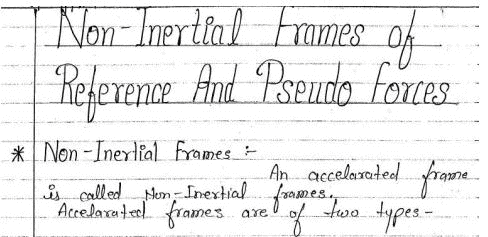 Non-Inertial Frames of
Reference And Pseudo Forces
* Non-Inertial Frames :-
An accelarated frame
is called Non-Inertial frames.
Accelarated frames are of two types-